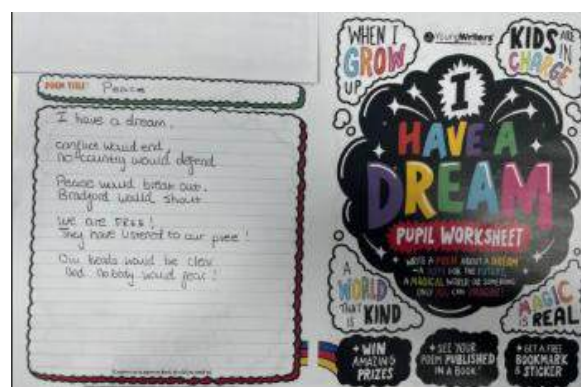 POEM TITLE: Peace
I have a dream,
conflict would end,
no country would defend
Peace would break out.
Bradford would shout
We are FREE!
They have listened to our plee!
Our heads would be clear
And nobody would fear!
WHEN I
GROW
UP
YoungWriters
KIDS ARE
IN
CHARGE
I
HAVE A
DREAM
PUPIL WORKSHEET
WRITE A POEM ABOUT A DREAM
A HOPE FOR THE FUTURE,
A MAGICAL WORLD OR SOMETHING
ONLY YOU CAN IMAGINE!
A
WORLD
THAT
IS KIND
MAGIC
IS REAL
WIN
AMAZING
PRIZES
SEE YOUR
POEM PUBLISHED
IN A BOOK
GET A FREE
BOOKMARK
& STICKER